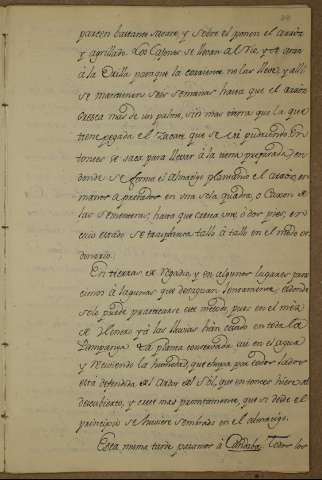 parecen bastante suave, y sobre el ponen el arròz
y agrillado. Los Capnes se llevan al Rio, y se atan
à la Orilla porque la corriente no los lleve, y alli
se mantienen seis semanas hasta que el arròz
cresca màs de un palmo, sin mas tierra que la que
tiene pegada el Zacate que se và pudriendo En-
tonces se saca para llevar à la tierra preparada, en
donde se forma el Almacigo plantando el arròz, en
manojos apretados en una sola quadra, o Caxon de
las sementeras; hasta que crezca uno, ò dos pies, en
cuio estado se transplanta tallo à tallo en el modo or-
dinario.
En tierras de Regadio, y en algunos lugares proxi-
cimos à lagunas que desaguan lentamente, es donde
solo puede practicarse este metodo, pues en el mes
de Henero ya las lluvias hàn cesado en toda la
Pampanga. La planta conservada asi en el agua
y reciviendo la humedad, que chupa por todos lados
està defendida del ardor del Sol, que entonces hiere al
descubierto, y crece mas prontamente, que si desde el
principio se huviere sembrado en el almacigo.
Esta misma tarde pasamos à Candaba. Todos los